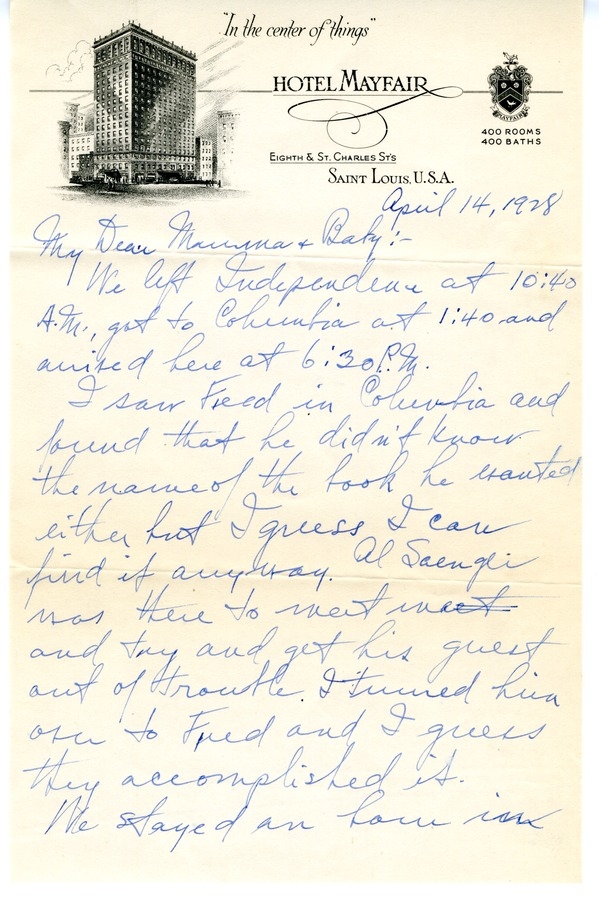 "In the center of things"
HOTEL MAYFAIR
MAYFAIR
400 ROOMS
400 BATHS
EIGHTH & ST. CHARLES ST'S
SAINT LOUIS, U.S.A.
April 14, 1928
My Dear Mamma & Baby:-
We left Independence at 10:40
A.M., got to Columbia at 1:40 and
arrived here at 6:30 P.M.
I saw Fred in Columbia and
found that he didn't know
the name of the book he wanted
either but I guess I can
find it anyway. Al
was there to meet
and try and get his guest
out of trouble. I turned him
over to Fred and I guess
they accomplished it.
We stayed an hour in